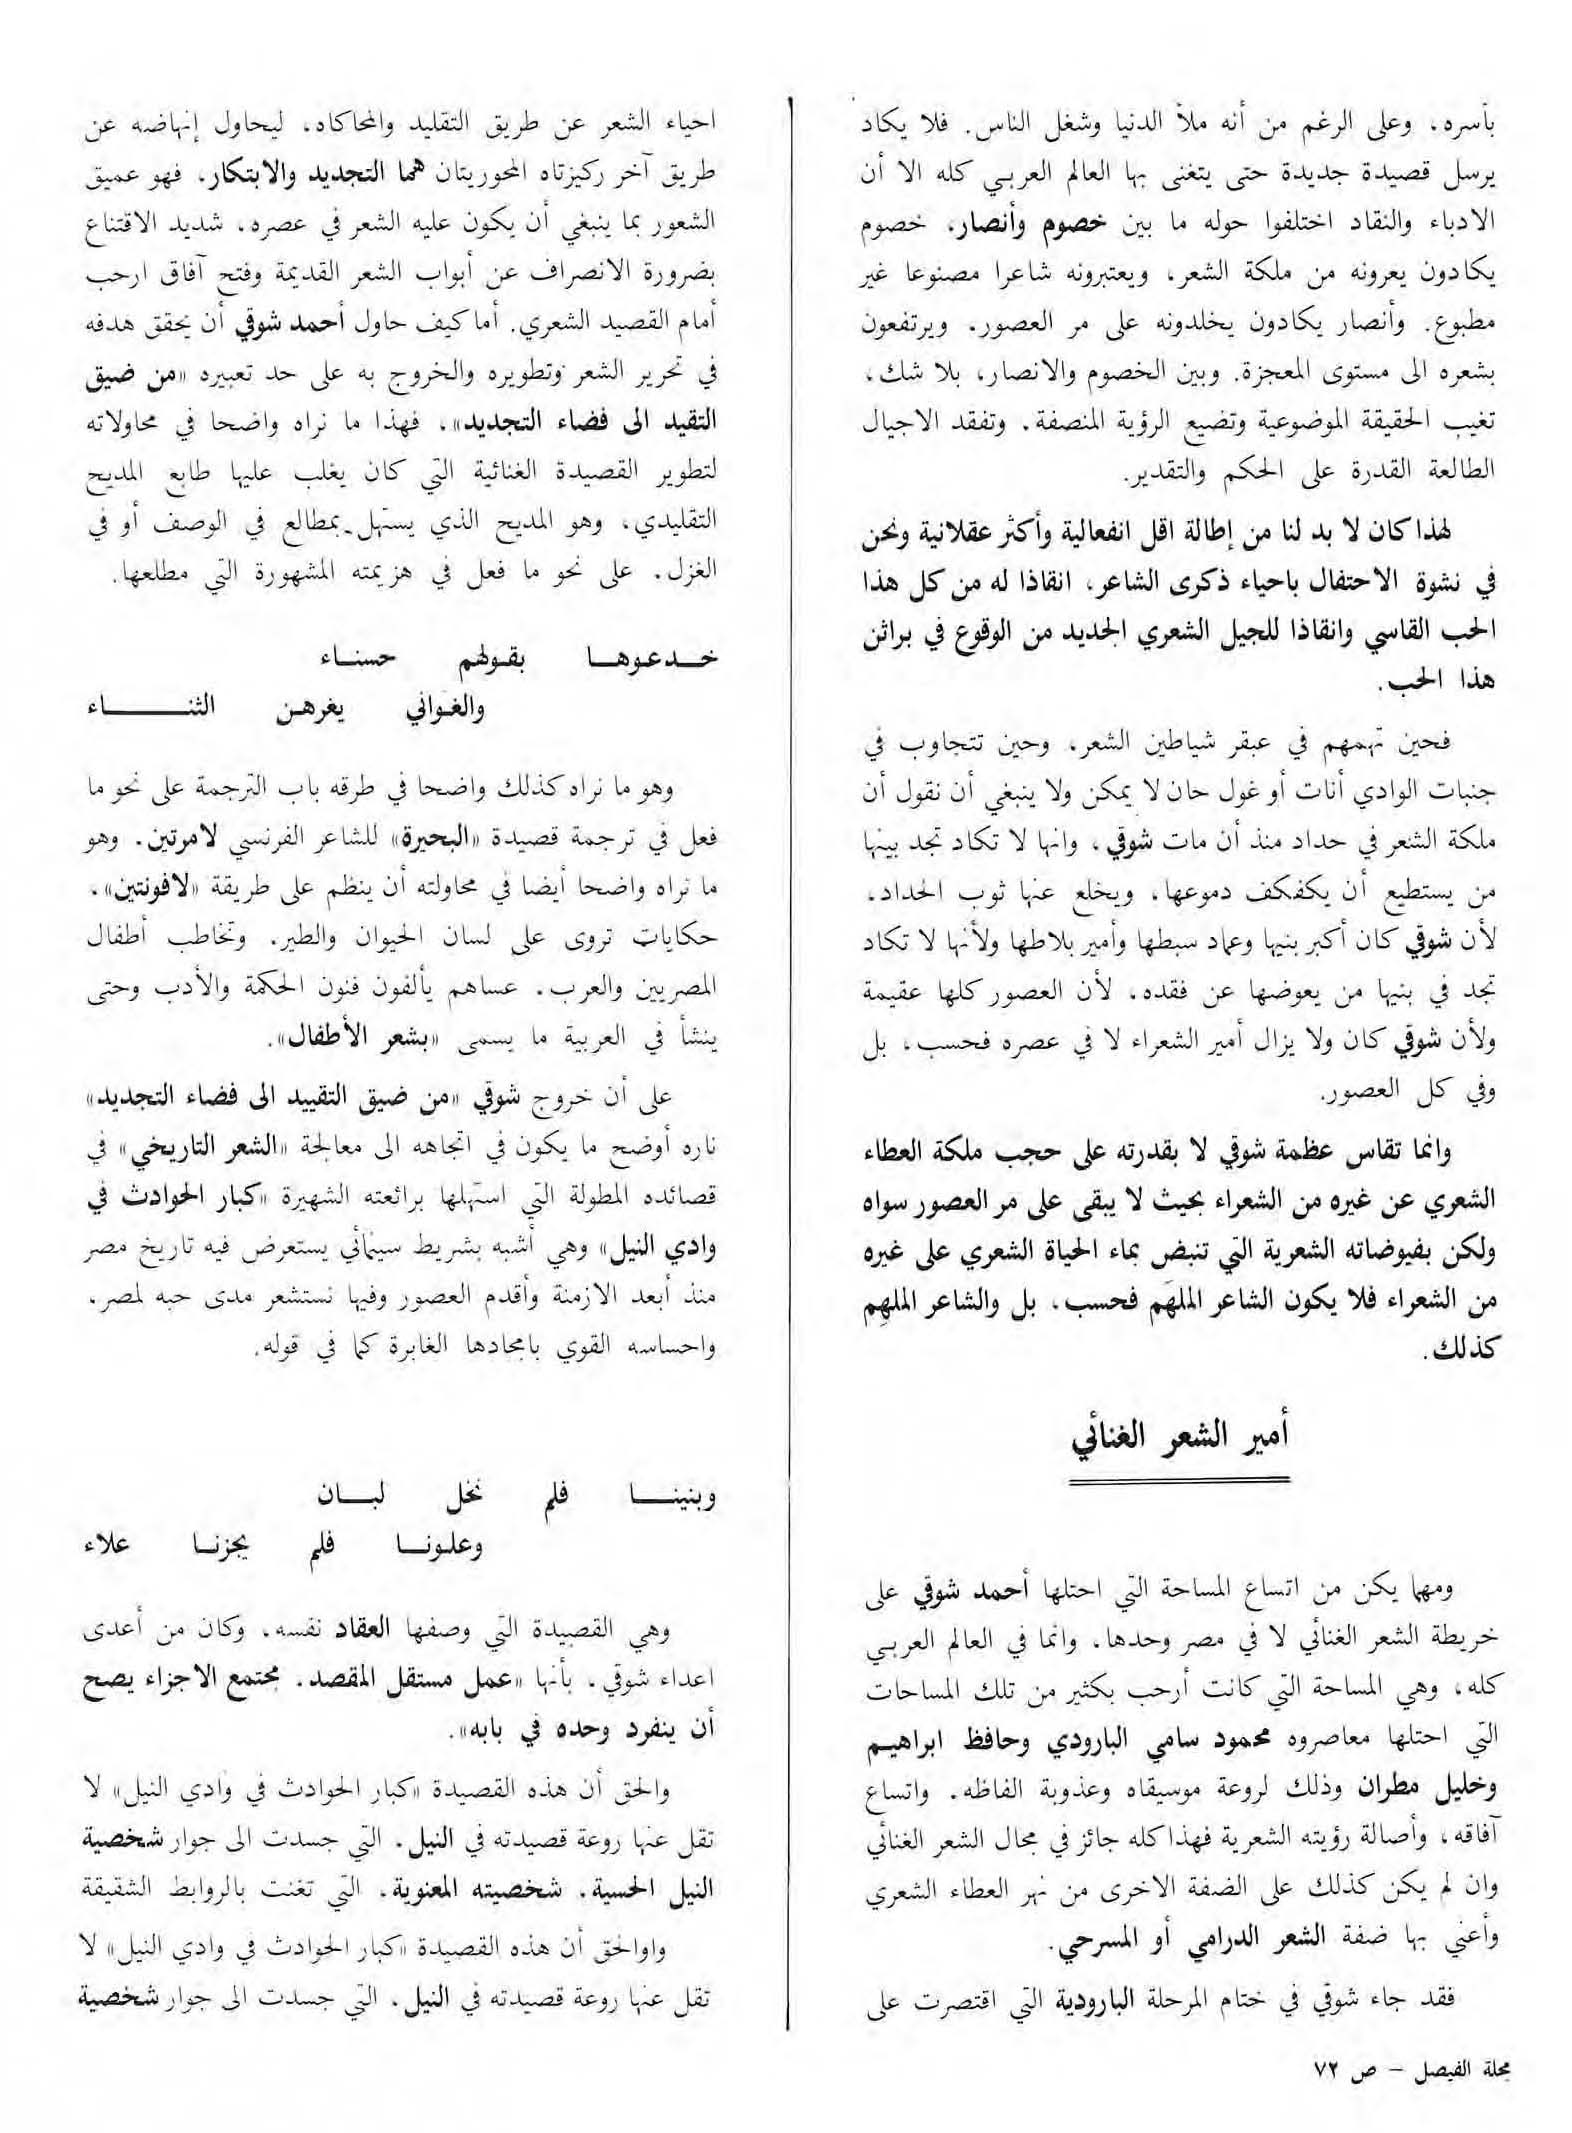 بأسره، وعلى الرغم من أنه ملأ الدنيا وشغل الناس. فلا يكاد
يرسل قصيدة جديدة حتى يتغنى بها العالم العربي كله الا أن
الادباء والنقاد اختلفوا حوله ما بين خصوم وأنصار، خصوم
يكادون يعرونه من ملكة الشعر، ويعتبرونه شاعرا مصنوعا غير
مطبوع. وأنصار يكادون يخلدونه على مر العصور. ويرتفعون
بشعره الى مستوى المعجزة. وبين الخصوم والانصار، بلا شك،
تغيب الحقيقة الموضوعية وتضيع الرؤية المنصفة. وتفقد الاجيال
الطالعة القدرة على الحكم والتقدير.
لهذا كان لا بد لنا من إطالة اقل انفعالية وأكثر عقلانية ونحن
في نشوة الاحتفال باحياء ذكرى الشاعر، انقاذا له من كل هذا
الحب القاسي وانقاذا للجيل الشعري الجديد من الوقوع في براثن
هذا الحب.
فحين تهمهم في عبقر شياطين الشعر، وحين تتجاوب في
جنبات الوادي أنات أو غول حان لا يمكن ولا ينبغي أن نقول أن
ملكة الشعر في حداد منذ أن مات شوقي، وانها لا تكاد تجد بينها
من يستطيع أن يكفكف دموعها، ويخلع عنها ثوب الحداد،
لأن شوقي كان أكبر بنيها وعماد سبطها وأمير بلاطها ولأنها لا تكاد
تجد في بنيها من يعوضها عن فقده، لأن العصور كلها عقيمة
ولأن شوقي كان ولا يزال أمير الشعراء لا في عصره فحسب، بل
وفي كل العصور.
وانما تقاس عظمة شوقي لا بقدرته على حجب ملكة العطاء
الشعري عن غيره من الشعراء بحيث لا يبقى على مر العصور سواه
ولكن بفيوضاته الشعرية التي تنبض بماء الحياة الشعري على غيره
من الشعراء فلا يكون الشاعر الملهَم فحسب، بل والشاعر الملهِم
كذلك.
أمير الشعر الغنائي
ومهما يكن من اتساع المساحة التي احتلها أحمد شوقي على
خريطة الشعر الغنائي لا في مصر وحدها، وانما في العالم العربي
كله، وهي المساحة التي كانت أرحب بكثير من تلك المساحات
التي احتلها معاصروه محمود سامي البارودي وحافظ ابراهيم
وخليل مطران وذلك لروعة موسيقاه وعذوبة الفاظه. واتساع
آفاقه، وأصالة رؤيته الشعرية فهذا كله جائز في مجال الشعر الغنائي
وان لم يكن كذلك على الضفة الاخرى من نهر العطاء الشعري
وأعني بها ضفة الشعر الدرامي أو المسرحي.
فقد جاء شوقي في ختام المرحلة البارودية التي اقتصرت على
احياء الشعر عن طريق التقليد والمحاكاه، ليحاول إنهاضه عن
طريق آخر ركيزتاه المحوريتان هما التجديد والابتكار، فهو عميق
الشعور بما ينبغي أن يكون عليه الشعر في عصره، شديد الاقتناع
بضرورة الانصراف عن أبواب الشعر القديمة وفتح آفاق ارحب
أمام القصيد الشعري. أما كيف حاول أحمد شوقي أن يحقق هدفه
في تحرير الشعر وتطويره والخروج به على حد تعبيره «من ضيق
التقيد الى فضاء التجديد»، فهذا ما نراه واضحا في محاولاته
لتطوير القصيدة الغنائية التي كان يغلب عليها طابع المديح
التقليدي، وهو المديح الذي يستهل بمطالع في الوصف أو في
الغزل. على نحو ما فعل في هزيمته المشهورة التي مطلعها.
خـدعوهـا بقولهم حسنـاء
والغواني يغرهـن الثنـاء
وهو ما نراه كذلك واضحا في طرقه باب الترجمة على نحو ما
فعل في ترجمة قصيدة «البحيرة» للشاعر الفرنسي لامرتين. وهو
ما نراه واضحا أيضا في محاولته أن ينظم على طريقة «لافونتين»،
حكايات تروى على لسان الحيوان والطير. وتخاطب أطفال
المصريين والعرب. عساهم يألفون فنون الحكمة والأدب وحتى
ينشأ في العربية ما يسمى «بشعر الأطفال».
على أن خروج شوقي «من ضيق التقييد الى فضاء التجديد»
ناره أوضح ما يكون في اتجاهه الى معالجة «الشعر التاريخي» في
قصائده المطولة التي استهلها برائعته الشهيرة «كبار الحوادث في
وادي النيل» وهي أشبه بشريط سينمائي يستعرض فيه تاريخ مصر
منذ أبعد الازمنة وأقدم العصور وفيها نستشعر مدى حبه لمصر،
واحساسه القوي بامجادها الغابرة كما في قوله.
وبنينـا فلم نخل لبـان
وعلونـا فلم يجزنـا علاء
وهي القصيدة التي وصفها العقاد نفسه، وكان من أعدى
اعداء شوقي، بأنها «عمل مستقل المقصد، مجتمع الاجزاء يصح
أن ينفرد وحده في بابه».
والحق أن هذه القصيدة «كبار الحوادث في وادي النيل» لا
تقل عنها روعة قصيدته في النيل. التي جسدت الى جوار شخصية
النيل الحسية. شخصيته المعنوية، التي تغنت بالروابط الشقيقة
واوالحق أن هذه القصيدة «كبار الحوادث في وادي النيل» لا
تقل عنها روعة قصيدته في النيل، التي جسدت الى جوار شخصية
مجلة الفيصل – ص ٧٢